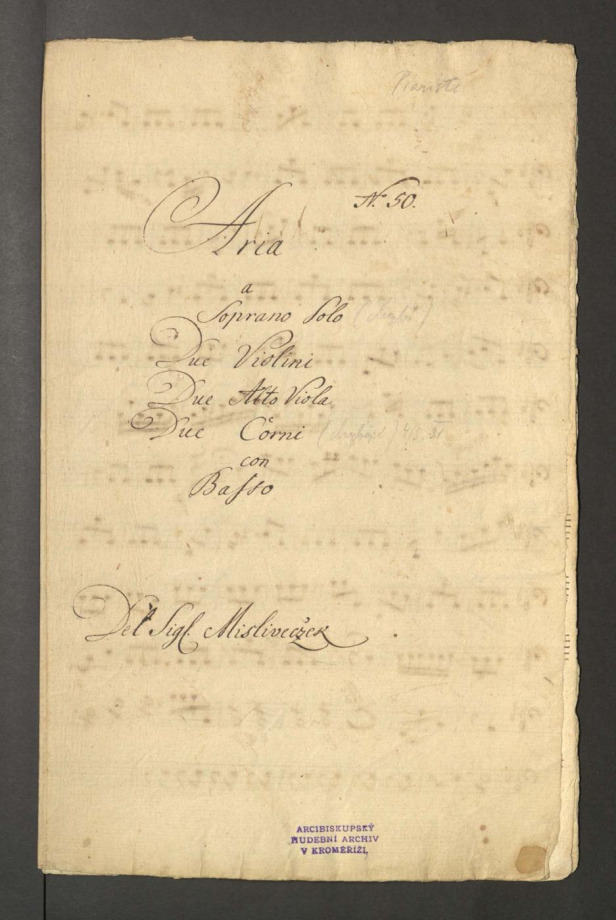 Piaristé
No 50.
Aria
a
Soprano Solo (chybí)
Due Violini
Due Alto Viola
Due Corni (chybějí)
con
Basso
Del Sigl. Misliveczek
ARCIBISKUPSKÝ
HUDEBNÍ ARCHIV
V KROMĚŘÍŽI.